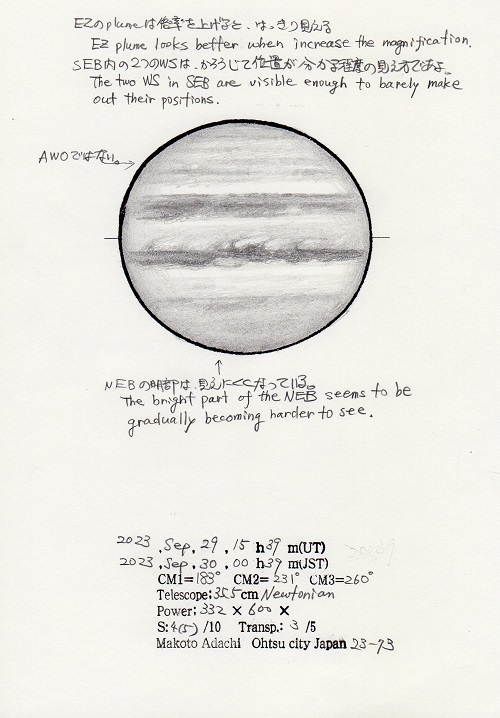 EZのplumeは倍率を上げると、はっきり見える
EZ plume looks better when increase the magnification.
SEB内の2つのWSは、かろうじて位置が分かる程度の見え方ですよ。
The two WS in SEB are visible enough to barely make
out their positions.
AWOではない。
NEBの明部は、見えにくくなっている。
The bright part of the NEB seems to be
gradually becoming harder to see.
2023 . Sep. 29 , 15 h39 m(UT)
2023 . Sep. 30 , 00 h39 m(JST)
CM1=183° CM2= 231° CM3=260°
Telescope:35.5cm Newtonian
Power: 332 × 600 ×
S:4(5) /10 Transp.: 3 /5
Makoto Adachi Ohtsu city Japan 23-73